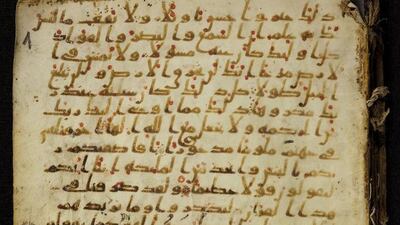 ذلك خير واحسن تاويلا ولا تقف ما ليس
لك به علم ان السمع والبصر والفواد
كل اولئك كان عنه مسولا ولا تمش في
الارض مرحا انك لن تخرق الارض ولن تبلغ
الجبال طولا كل ذلك كان سيئه عند
ربك مكروها ذلك مما اوحى اليك ربك
من الحكمه ولا تجعل مع الله الها اخر فتلقى
في جهنم ملوما مدحورا افاصفيكم ر
بكم بالبنين واتخذ من الملئكه انثا انكم
لتقولون قولا عظيما ولقد صرفنا في
هذا القران ليذكروا وما يزيدهم